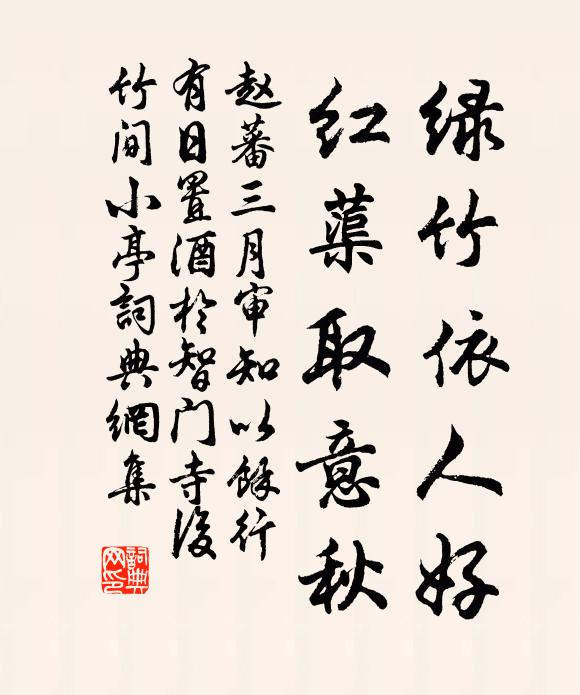 绿竹依人好
红蕖取意秋
赵蕃三月审知以馀行
有日置酒於智门寺後
竹间小亭詞典網集
詞典网印